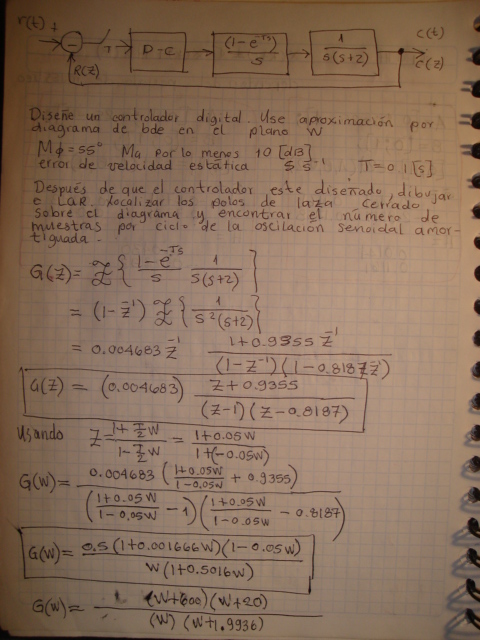 r(t) +
-
T
R(z)
D-C
(1-e^-Ts)
s
1
s(s+2)
c(t)
c(z)
Diseñe un controlador digital. Use aproximación por
diagrama de bde en el plano W
Mϕ=55° MG Por lo menos 10 [dB]
error de velocidad estática 5 s^-1 T=0.1[s]
Después de que el controlador este diseñado, dibujar
e L.G.R. Localizar los polos de laza cerrado
sobre el diagrama y encontrar el número de
muestras por ciclo de la oscilación senoidal amor-
tiguada.
G(z)= Z{ (1-e^-Ts)/s 1/(s(s+2)) }
= (1-z^-1) Z{ 1/(s^2(s+2)) }
= 0.004683 z^-1 (1+0.9355 z^-1)/((1-z^-1)(1-0.8187z^-1))
G(z) = (0.004683) (z+0.9355)/((z-1)(z-0.8187))
Usando z= (1+T/2 w)/(1-T/2 w) = (1+0.05w)/(1+(-0.05w))
G(w)= 0.004683 ((1+0.05w)/(1-0.05w) + 0.9355) / (((1+0.05w)/(1-0.05w) - 1)((1+0.05w)/(1-0.05w) - 0.8187))
G(w)= 0.5(1+0.001666w)(1-0.05w) / (w(1+0.5016w))
G(w)= - (w+600)(w+20) / ((w)(w+1.9936))